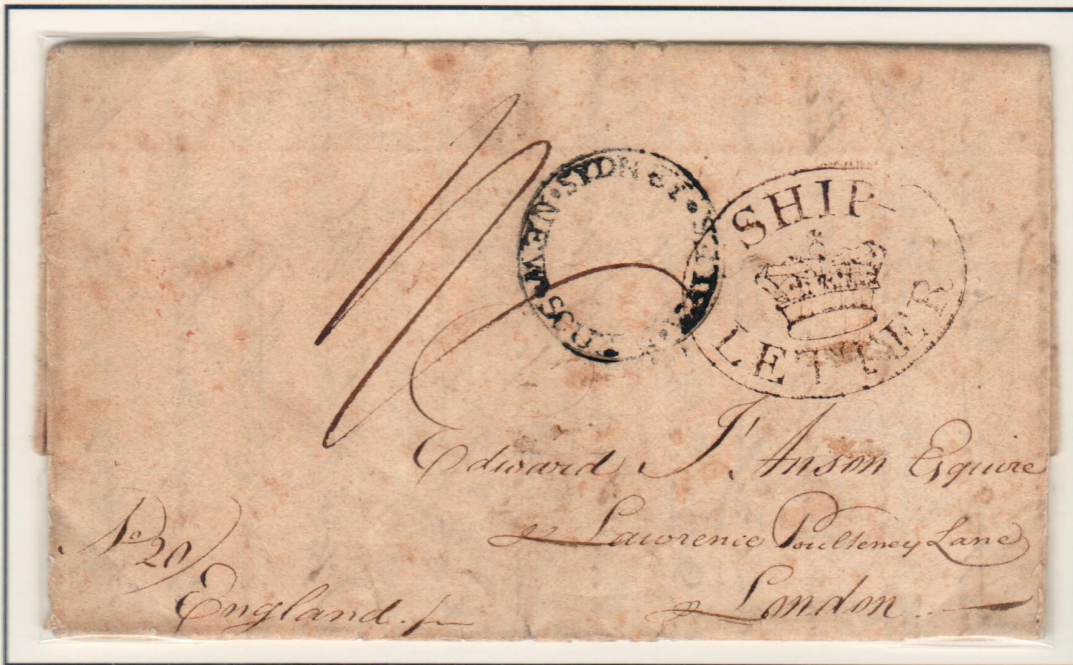 SYDNEY · NEW · SOU
SHIP-
LETTER
Edward I'Anson Esquire
Lawrence Poulteney Lane
London
No 20
England